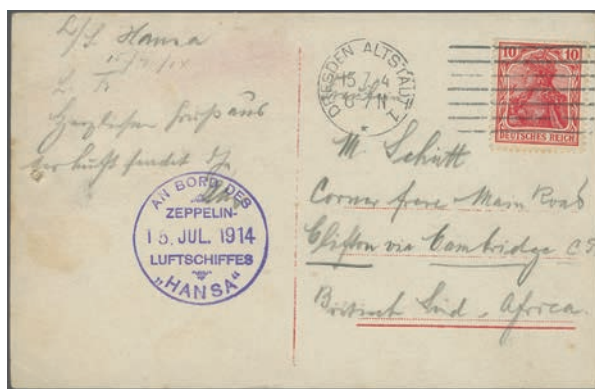 L/S Hansa
Herzlichen Gruß aus
der Luft sendet Dir
AN BORD DES
ZEPPELIN-
15. JUL. 1914
LUFTSCHIFFES
„HANSA“
DRESDEN ALTSTADT
15.7.14
6-7N
1
10 10
DEUTSCHES REICH
M. Schütt
Corner frere-Main Road
Clifton via Cambridge
British Süd-Africa